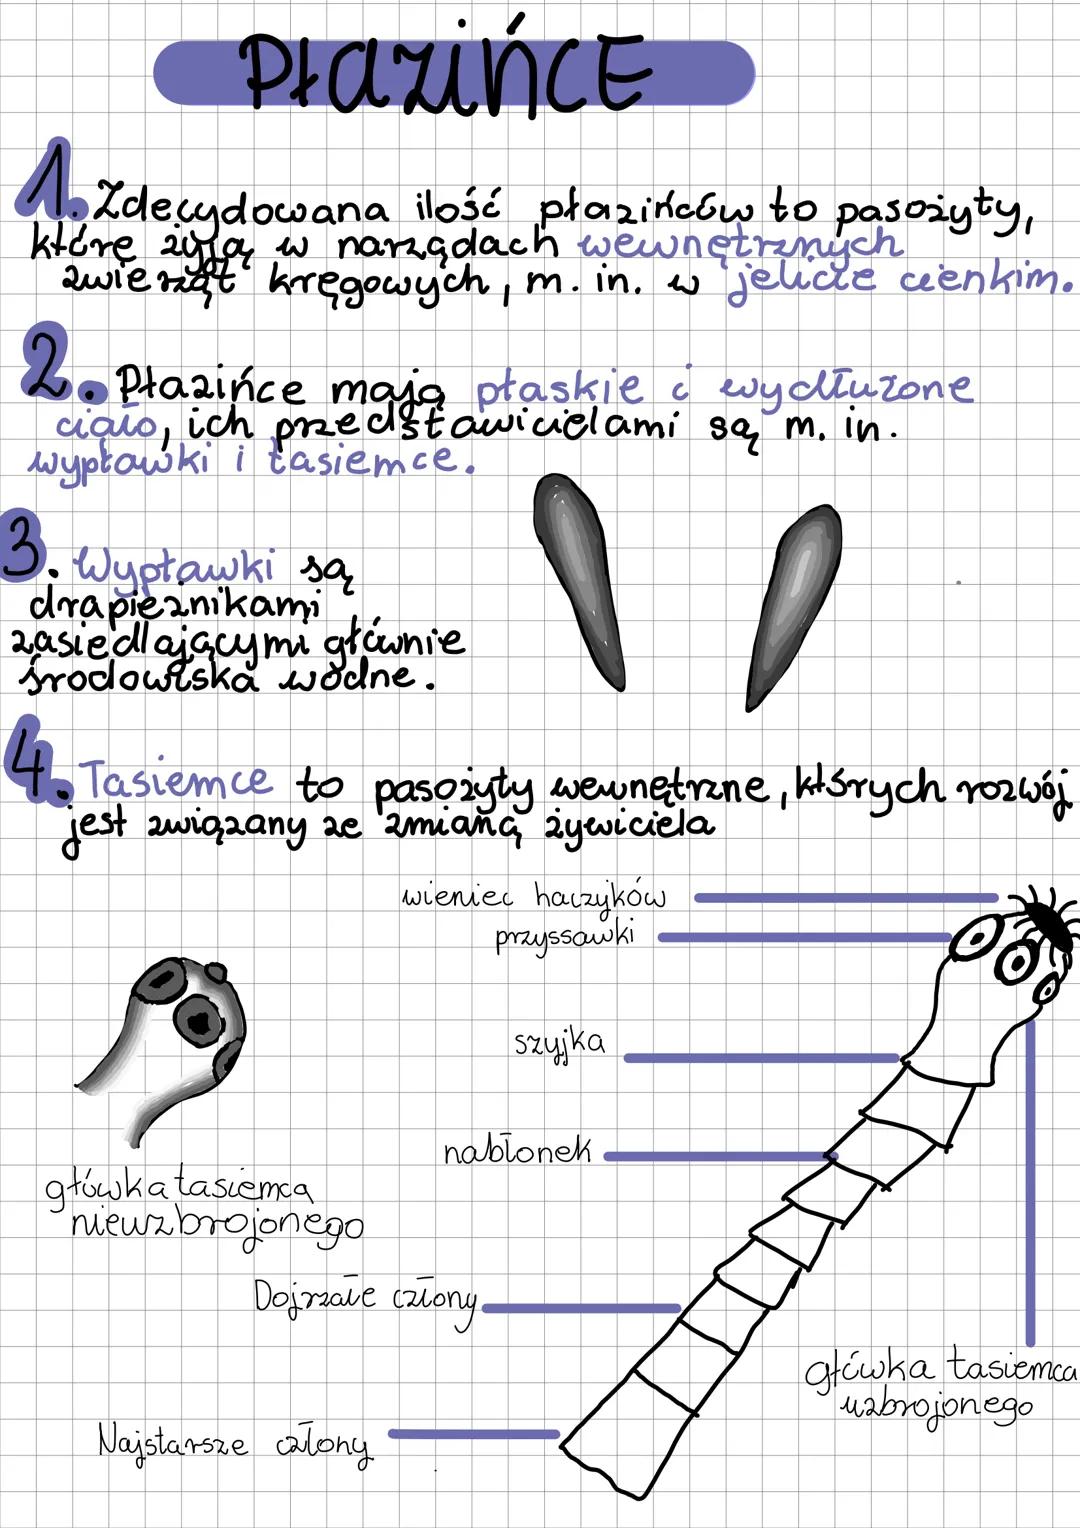 PŁazińCE
1. Zdecydowana ilość płazińców to pasożyty,
które żyją w narządach wewnętrznych
zwierząt kręgowych, m. in. w jelicie cienkim.
2. Płazińce mają płaskie i wydłużone
ciało, ich przedstawicielami są m. in.
wypławki i tasiemce.
3. Wypławki są
drapieżnikami
zasiedlającymi głównie
środowiska wodne.
4. Tasiemce to pasożyty wewnętrzne, których rozwój
jest związany ze zmianą żywiciela
wieniec haczyków
przyssawki
szyjka
nabłonek
główka tasiemca
nieuzbrojonego
Dojrzałe człony
główka tasiemca
uzbrojonego
Najstarsze człony